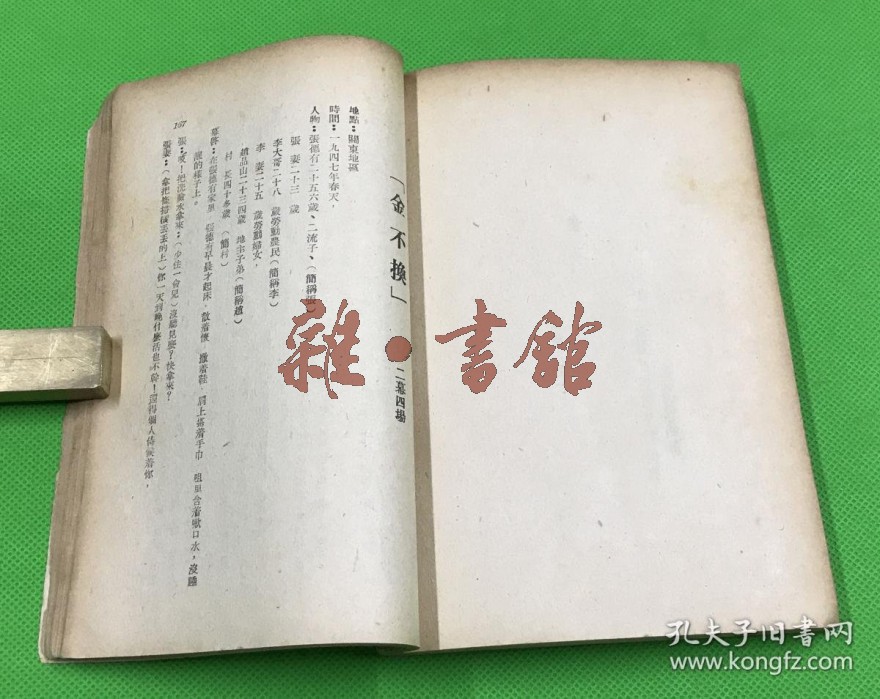 「金不換」 二幕四場
地點：關東地區
時間：一九四七年春天，
人物：張德有二十五六歲、二流子、（簡稱張）
張 妻二十三 歲
李大哥二十八 歲勞動農民（簡稱李）
李 妻二十五 歲勞動婦女，
趙品山二十三四歲 地主子弟（簡稱趙）
村 長四十多歲 （簡村）
幕啓：在張德有家里 張德有早晨才起床，散着懷 趿着鞋，肩上搭着手巾 咀里含着漱口水，沒睡
醒的樣子上。
張：噯！把洗臉水拿來：（少佳一會兒）沒聽見麽？快拿來？
張妻：你一天到晚什麽活也不幹！還得個人侍候着你，
107
雜·書館
孔夫子旧書网
www.kongfz.com